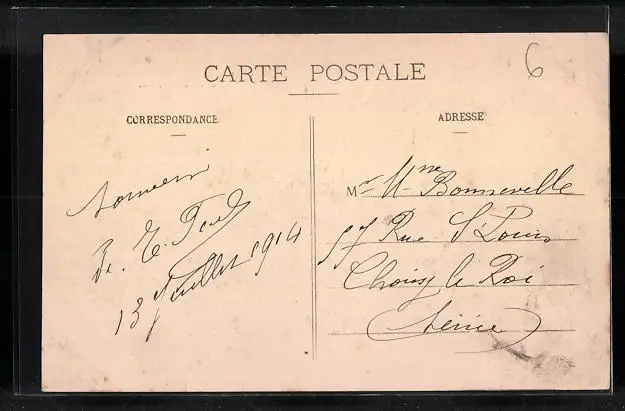 6
CARTE POSTALE
CORRESPONDANCE
ADRESSE
Souvenir
De. E.
13 Juillet 1914
Mr Mme Bonneville
57 Rue St Louis
Choisy le Roi
(Seine)